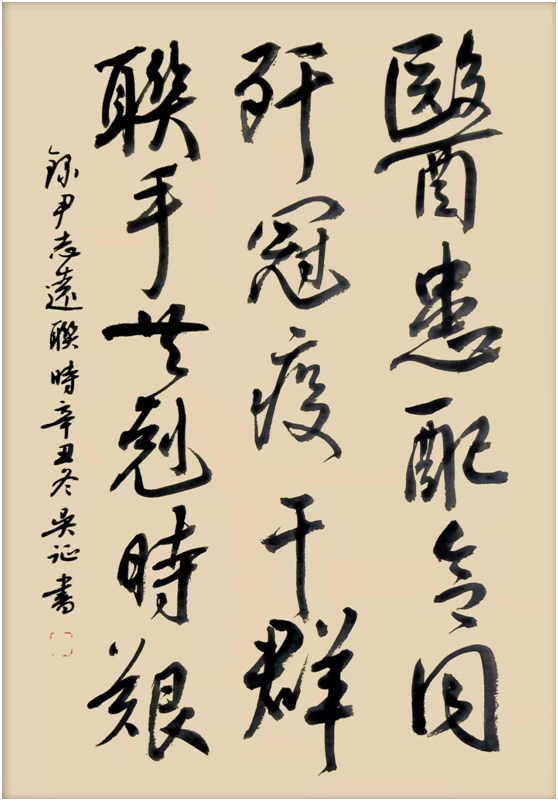 醫患配合同
歼冠疫干群
聯手共剋時艱
錄尹志遠聯時辛丑冬吳証書